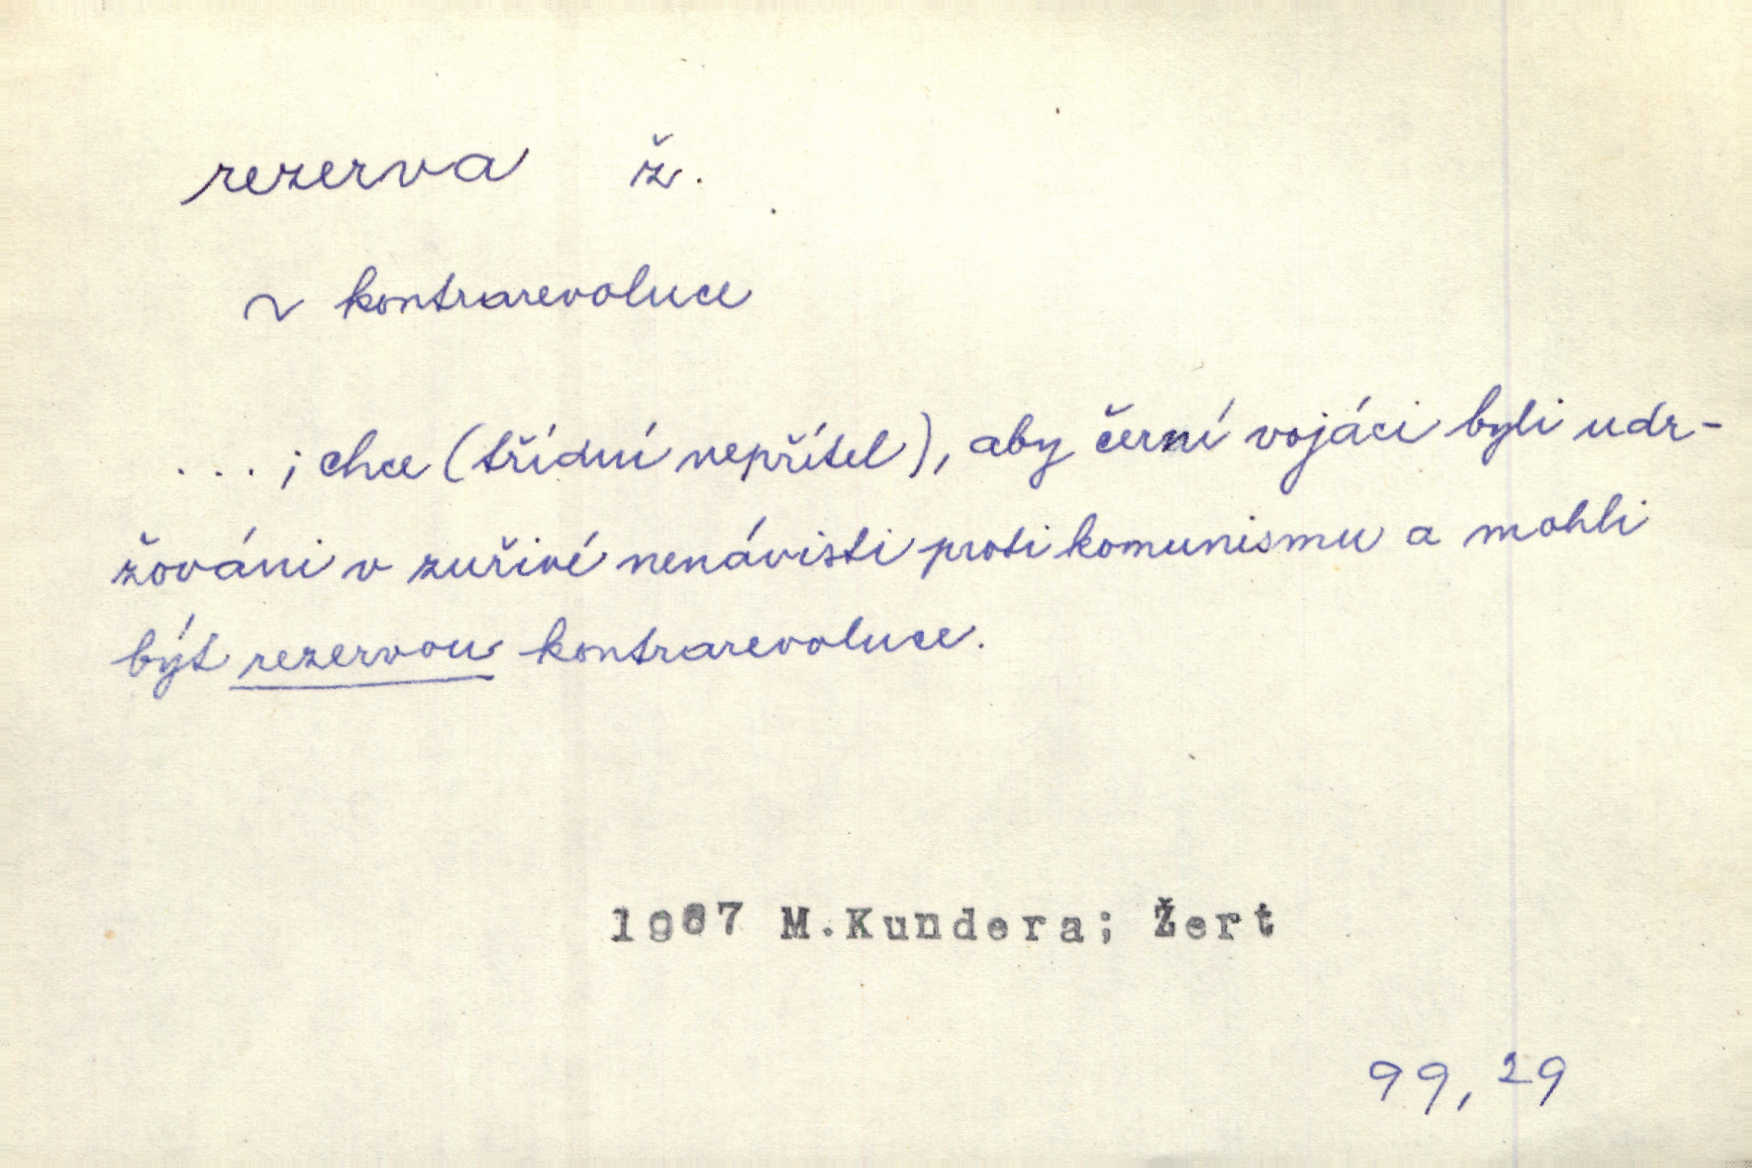 rezerva ž.
~ kontrarevoluce
...; chce (třídní nepřítel), aby černí vojáci byli udr-
žováni v zuřivé nenávisti proti komunismu a mohli
být rezervou kontrarevoluce.
1967 M.Kundera; Žert
99, 29